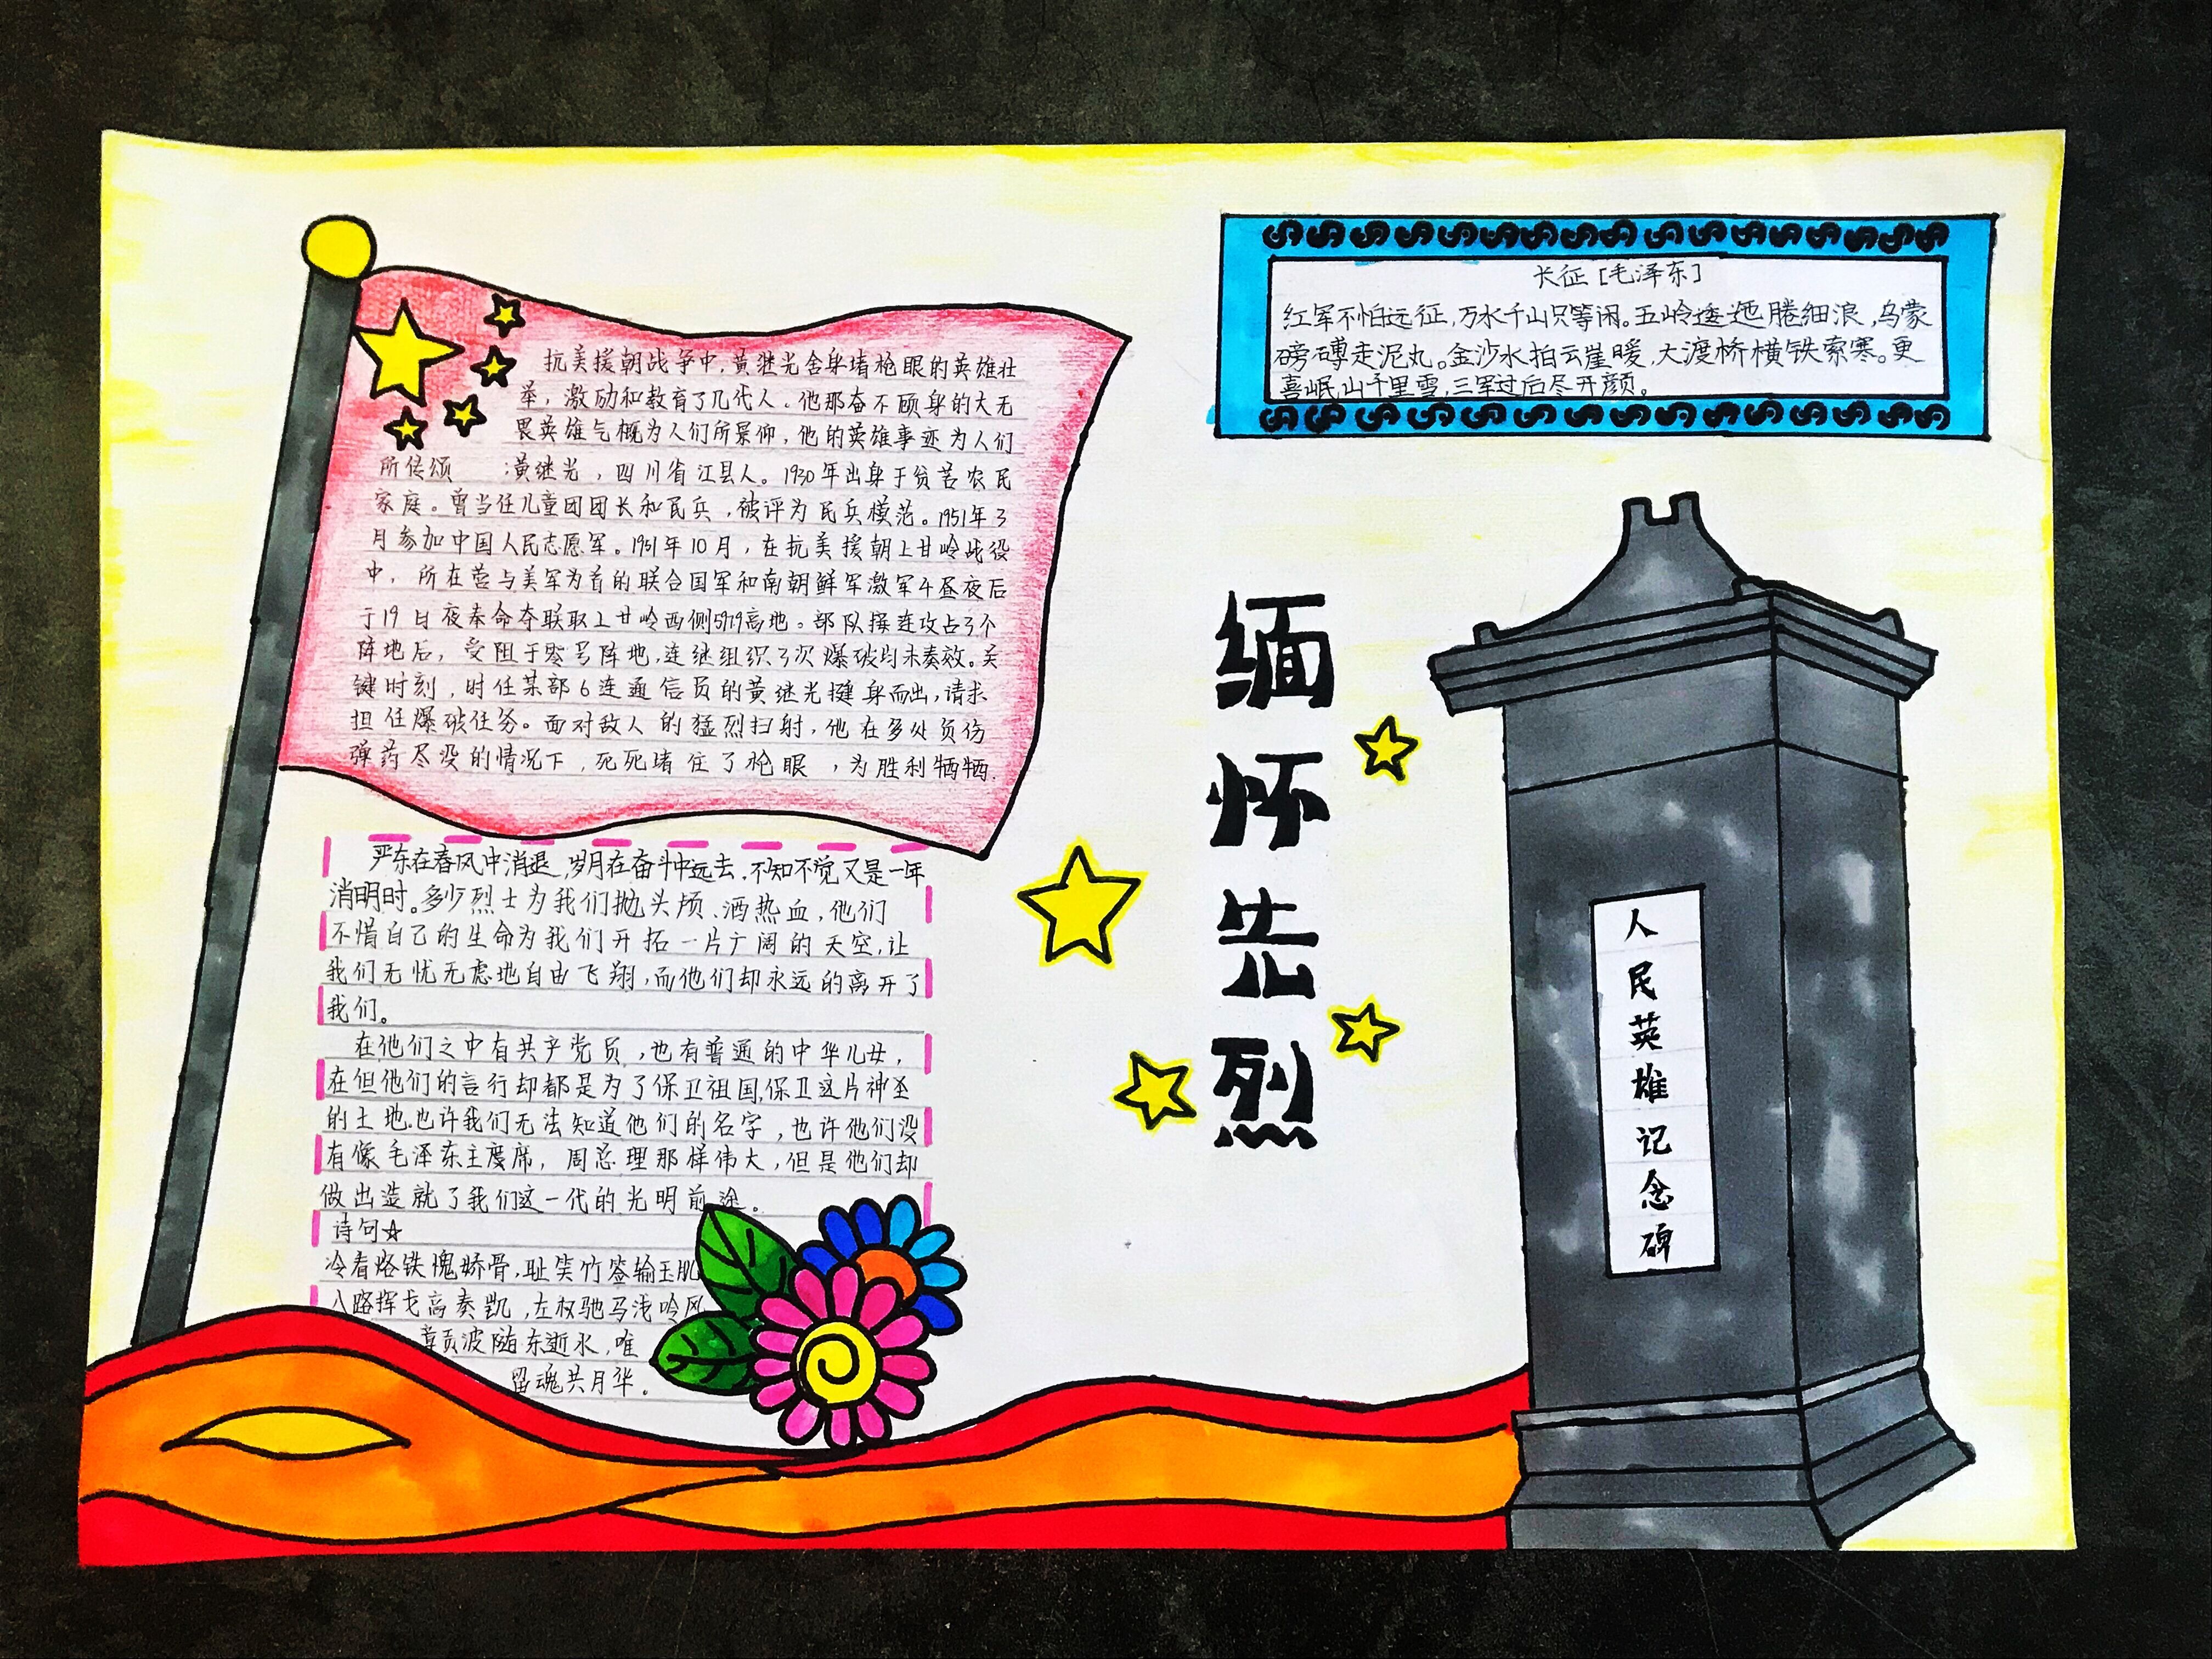 抗美援朝战争中,黄继光舍身堵枪眼的英雄壮
举，激励和教育了几代人。他那奋不顾身的大无
畏英雄气概为人们所景仰，他的英雄事迹为人们
所传颂 ;黄继光，四川省江县人。1930年出身于贫苦农民
家庭。曾当任儿童团团长和民兵，被评为民兵模范。1951年3
月参加中国人民志愿军。1951年10月，在抗美援朝上甘岭战役
中，所在营与美军为首的联合国军和南朝鲜军激军4昼夜后
于19日夜奉命夺联取上甘岭西侧5979高地。部队接连攻占3个
阵地后，受阻于零号阵地,连继组织3次爆破均未奏效。关
键时刻,时任某部6连通信员的黄继光挺身而出,请求
担任爆破任务。面对敌人的猛烈扫射，他在多处负伤
弹药尽没的情况下,死死堵住了枪眼，为胜利牺牺.
严东在春风中消退,岁月在奋斗中远去.不知不觉又是一年
消明时。多少烈士为我们抛头颅、洒热血,他们
不惜自己的生命为我们开拓一片广阔的天空,让
我们无忧无虑地自由飞翔,而他们却永远的离开了
我们。
在他们之中有共产党员,也有普通的中华儿女,
在但他们的言行却都是为了保卫祖国,保卫这片神圣
的土地.也许我们无法知道他们的名字,也许他们没
有像毛泽东主度席,周总理那样伟大,但是他们却
做出造就了我们这一代的光明前途。
诗句☆
冷看烙铁愧娇骨,耻笑竹签输玉肌
八路挥戈高奏凯,左权驰马浅吟风
贡波随东逝水,唯
留魂共月华。
长征[毛泽东]
红军不怕远征,万水千山只等闲。五岭逶迤腾细浪,乌蒙
磅礴走泥丸。金沙水拍云崖暖,大渡桥横铁索寒。更
喜岷山千里雪,三军过后尽开颜。
缅怀先烈
人民英雄记念碑